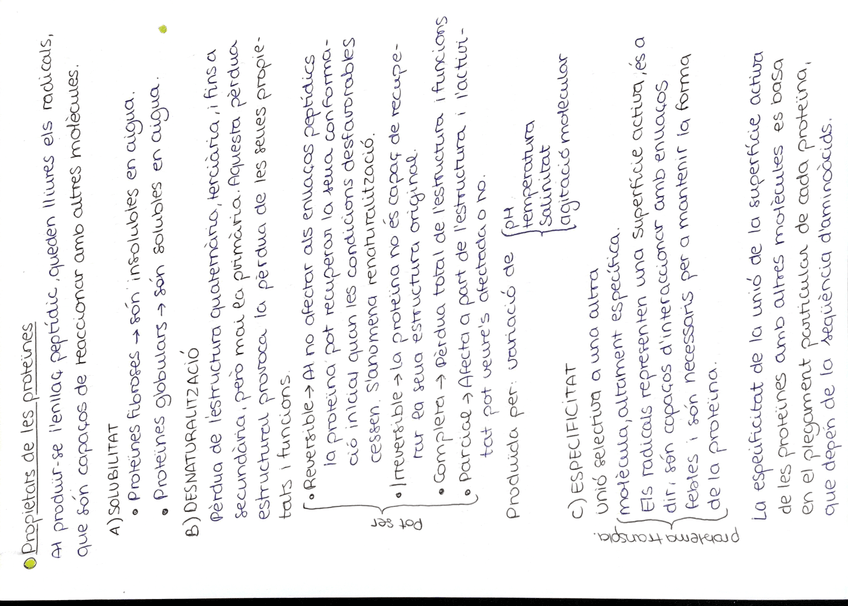 Propietats de les proteïnes
Al produir-se l'enllaç peptídic, queden lliures els radicals,
que són capaços de reaccionar amb altres molècules.
A) SOLUBILITAT
• Proteïnes fibroses → són insolubles en aigua.
• Proteïnes globulars → són solubles en aigua.
B) DESNATURALITZACIÓ
Pèrdua de l'estructura quaternària, terciària, i fins a
secundària, però mai la primària. Aquesta pèrdua
estructural provoca la pèrdua de les seues propie-
tats i funcions.
Pot ser
• Reversible → Al no afectar als enllaços peptídics
la proteïna pot recuperar la seua conforma-
ció inicial quan les condicions desfavorables
cessen. S'anomena renaturalització.
• Irreversible → la proteïna no és capaç de recupe-
rar la seua estructura original.
• Completa → Pèrdua total de l'estructura i funcions
• Parcial → Afecta a part de l'estructura i l'activi-
tat pot veure's afectada o no.
Produïda per: variació de
pH
temperatura
salinitat
agitació molecular
C) ESPECIFICITAT
Unió selectiva a una altra
molècula, altament específica.
problema transpla.
Els radicals representen una superfície activa, és a
dir, són capaços d'interaccionar amb enllaços
febles i són necessaris per a mantenir la forma
de la proteïna.
La especificitat de la unió de la superfície activa
de les proteïnes amb altres molècules es basa
en el plegament particular de cada proteïna,
que depén de la seqüència d'aminoàcids.